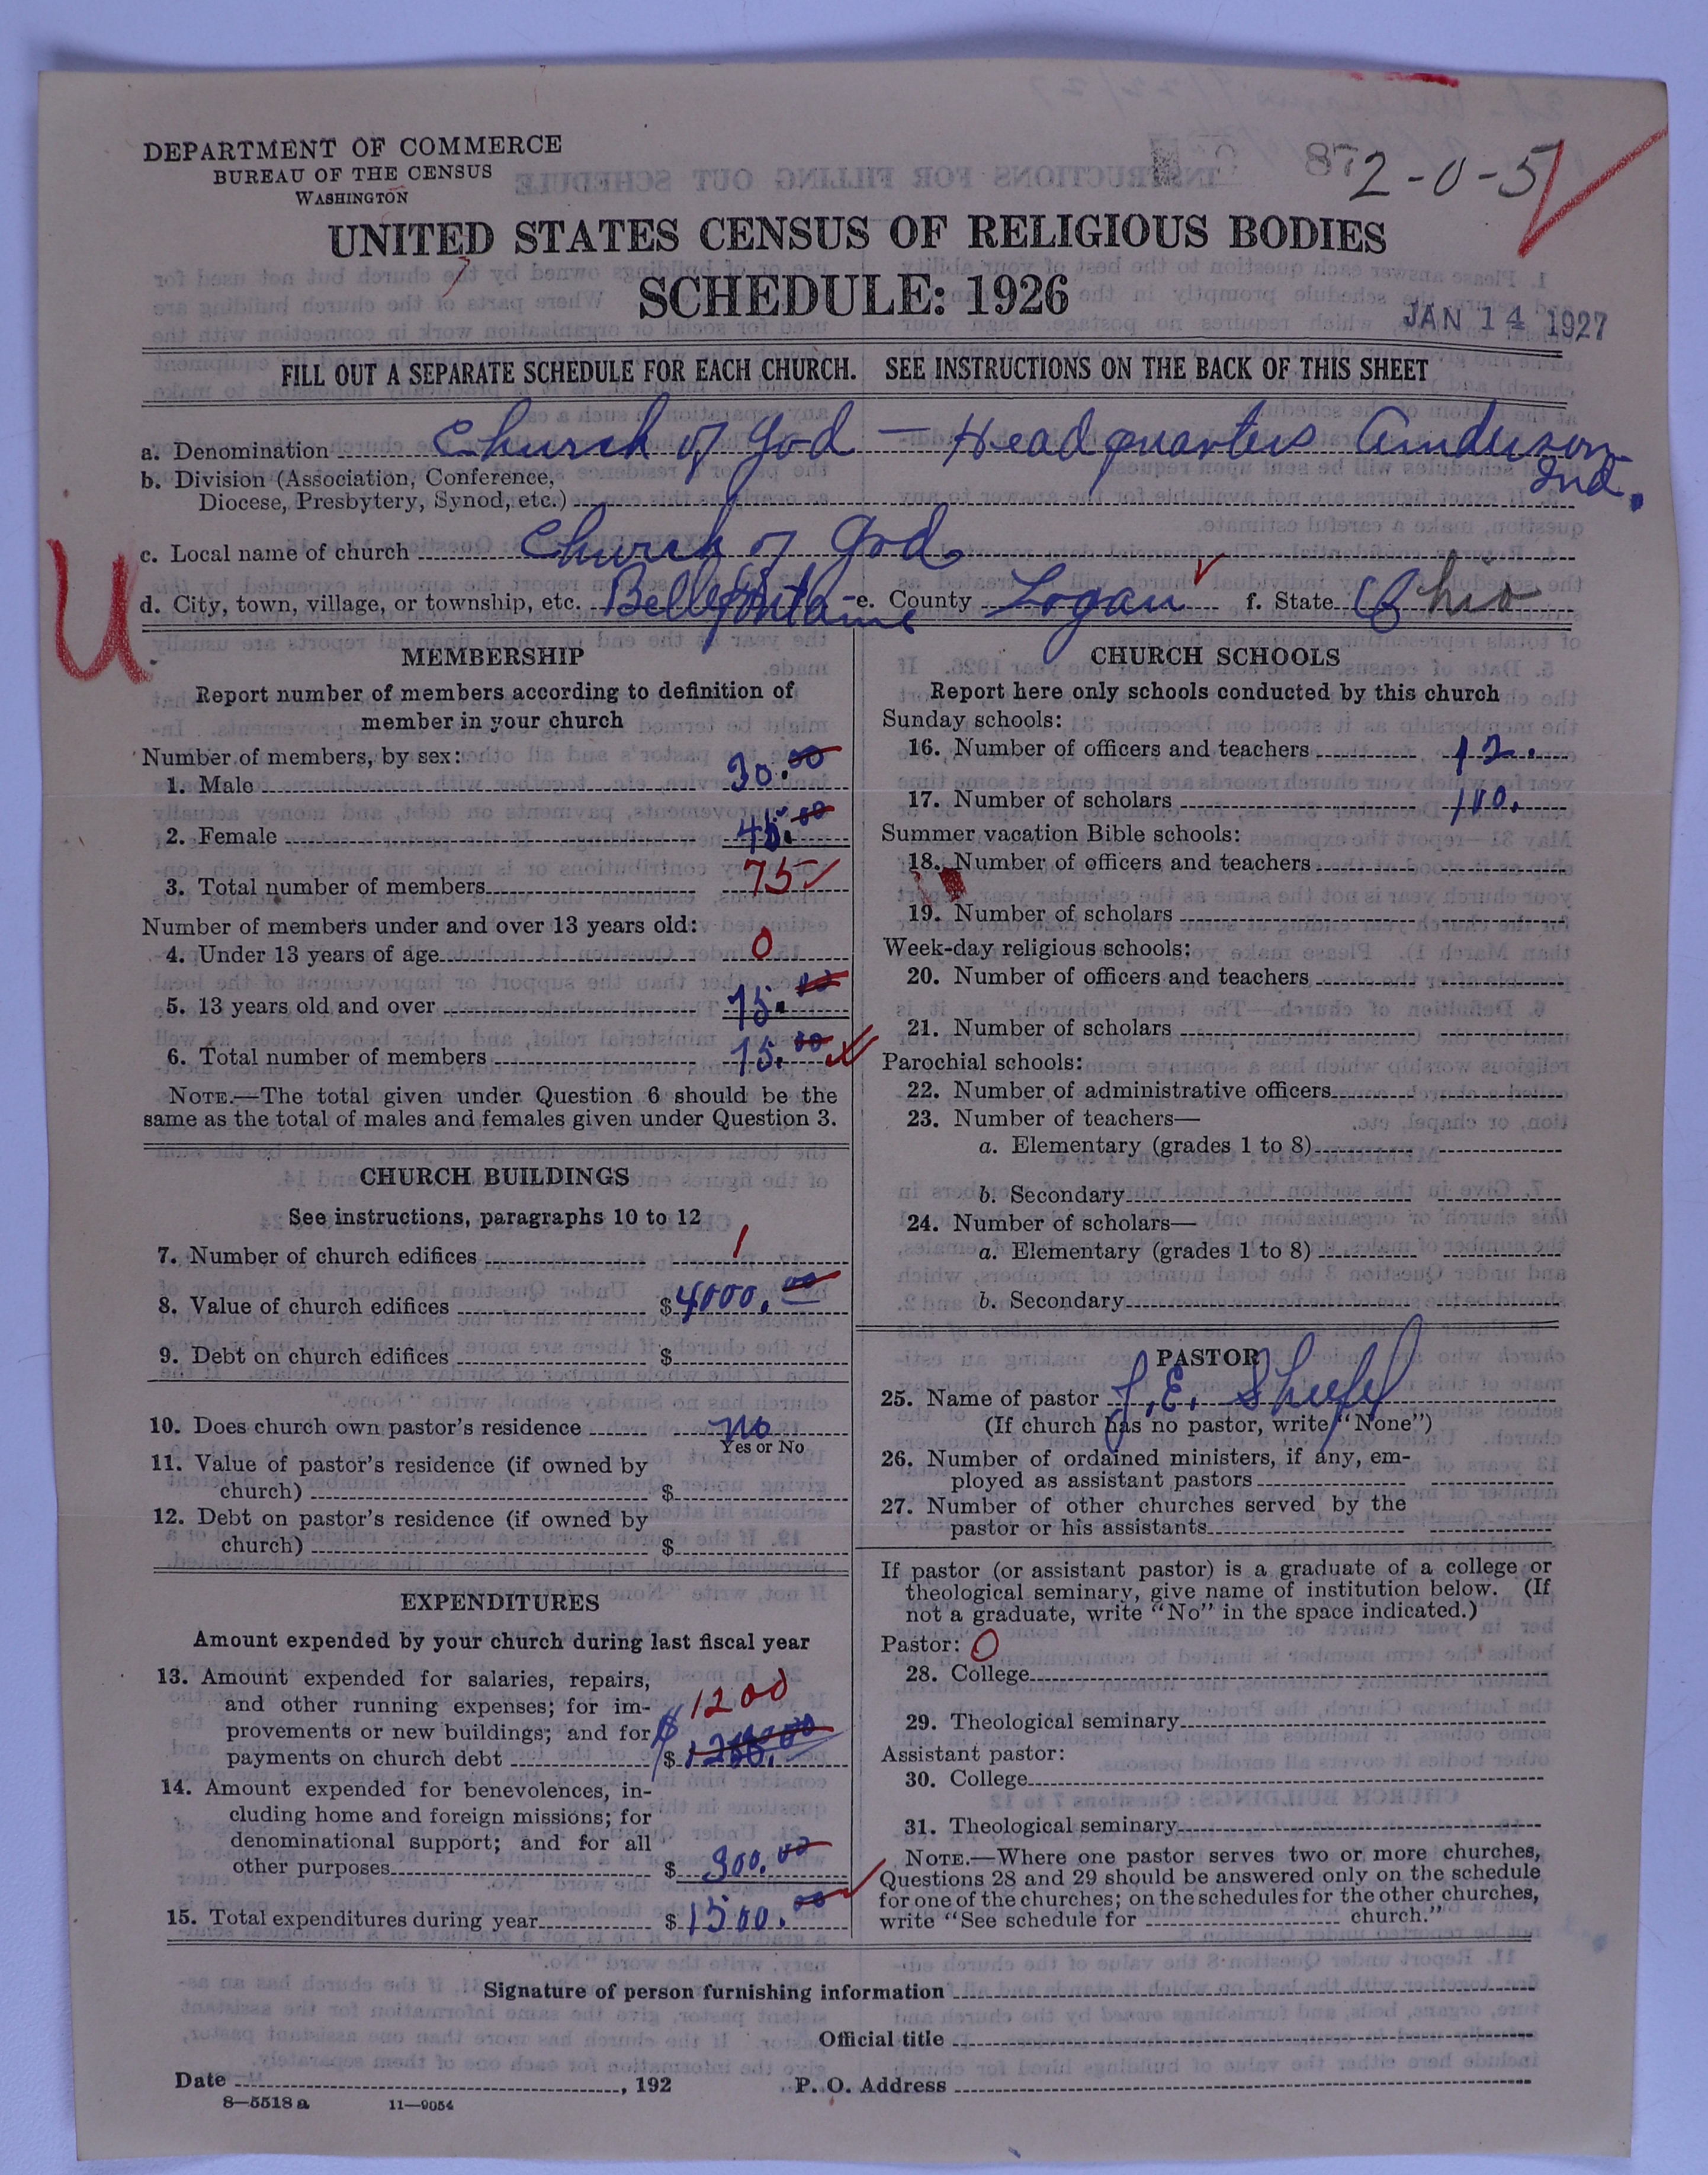 DEPARTMENT OF COMMERCE
BUREAU OF THE CENSUS
WASHINGTON
872-0-5
UNITED STATES CENSUS OF RELIGIOUS BODIES
SCHEDULE: 1926
JAN 14 1927
FILL OUT A SEPARATE SCHEDULE FOR EACH CHURCH. SEE INSTRUCTIONS ON THE BACK OF THIS SHEET
a. Denomination Church of God — Headquarters Anderson Ind.
b. Division (Association, Conference,
Diocese, Presbytery, Synod, etc.)
c. Local name of church Church of God
d. City, town, village, or township, etc. Bellefontaine e. County Logan f. State Ohio
U
MEMBERSHIP
Report number of members according to definition of
member in your church
Number of members, by sex:
1. Male 30.00
2. Female 45.00
3. Total number of members 75
Number of members under and over 13 years old:
4. Under 13 years of age 0
5. 13 years old and over 75.00
6. Total number of members 75.00
NOTE.—The total given under Question 6 should be the
same as the total of males and females given under Question 3.
CHURCH BUILDINGS
See instructions, paragraphs 10 to 12
7. Number of church edifices 1
8. Value of church edifices $4000.00
9. Debt on church edifices $
10. Does church own pastor's residence no
Yes or No
11. Value of pastor's residence (if owned by
church) $
12. Debt on pastor's residence (if owned by
church) $
EXPENDITURES
Amount expended by your church during last fiscal year
13. Amount expended for salaries, repairs,
and other running expenses; for im-
provements or new buildings; and for
payments on church debt $
$1200
14. Amount expended for benevolences, in-
cluding home and foreign missions; for
denominational support; and for all
other purposes $ 300.00
15. Total expenditures during year $1500.00
CHURCH SCHOOLS
Report here only schools conducted by this church
Sunday schools:
16. Number of officers and teachers 12.
17. Number of scholars 110.
Summer vacation Bible schools:
18. Number of officers and teachers
19. Number of scholars
Week-day religious schools:
20. Number of officers and teachers
21. Number of scholars
Parochial schools:
22. Number of administrative officers
23. Number of teachers—
a. Elementary (grades 1 to 8)
b. Secondary
24. Number of scholars—
a. Elementary (grades 1 to 8)
b. Secondary
PASTOR
25. Name of pastor J. E.
(If church has no pastor, write "None")
26. Number of ordained ministers, if any, em-
ployed as assistant pastors
27. Number of other churches served by the
pastor or his assistants
If pastor (or assistant pastor) is a graduate of a college or
theological seminary, give name of institution below. (If
not a graduate, write "No" in the space indicated.)
Pastor: 0
28. College
29. Theological seminary
Assistant pastor:
30. College
31. Theological seminary
NOTE.—Where one pastor serves two or more churches,
Questions 28 and 29 should be answered only on the schedule
for one of the churches; on the schedules for the other churches,
write "See schedule for church."
Signature of person furnishing information
Official title
Date , 192 P. O. Address
8—5518 a 11—9054